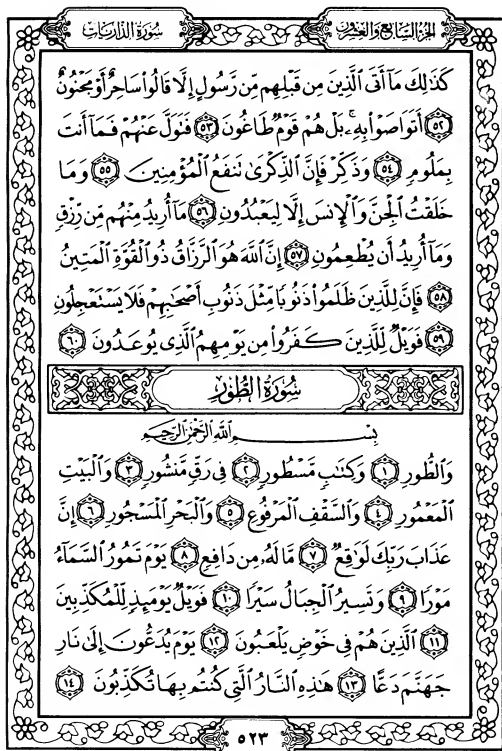 الجزء السابع والعشرون
سورة الذاريات
كَذَٰلِكَ مَآ أَتَى الَّذِينَ مِن قَبْلِهِم مِّن رَّسُولٍ إِلَّا قَالُوا۟ سَاحِرٌ أَوْ مَجْنُونٌ
٥٢ أَتَوَاصَوْا۟ بِهِۦ ۚ بَلْ هُمْ قَوْمٌ طَاغُونَ ٥٣ فَتَوَلَّ عَنْهُمْ فَمَآ أَنتَ
بِمَلُومٍ ٥٤ وَذَكِّرْ فَإِنَّ الذِّكْرَىٰ تَنفَعُ الْمُؤْمِنِينَ ٥٥ وَمَا
خَلَقْتُ الْجِنَّ وَالْإِنسَ إِلَّا لِيَعْبُدُونِ ٥٦ مَآ أُرِيدُ مِنْهُم مِّن رِّزْقٍ
وَمَآ أُرِيدُ أَن يُطْعِمُونِ ٥٧ إِنَّ اللَّهَ هُوَ الرَّزَّاقُ ذُو الْقُوَّةِ الْمَتِينُ
٥٨ فَإِنَّ لِلَّذِينَ ظَلَمُوا۟ ذَنُوبًا مِّثْلَ ذَنُوبِ أَصْحَٰبِهِمْ فَلَا يَسْتَعْجِلُونِ
٥٩ فَوَيْلٌ لِّلَّذِينَ كَفَرُوا۟ مِن يَوْمِهِمُ الَّذِى يُوعَدُونَ ٦٠
سُورَةُ الطُّورِ
بِسْمِ اللَّهِ الرَّحْمَٰنِ الرَّحِيمِ
وَالطُّورِ ١ وَكِتَٰبٍ مَّسْطُورٍ ٢ فِى رَقٍّ مَّنشُورٍ ٣ وَالْبَيْتِ
الْمَعْمُورِ ٤ وَالسَّقْفِ الْمَرْفُوعِ ٥ وَالْبَحْرِ الْمَسْجُورِ ٦ إِنَّ
عَذَابَ رَبِّكَ لَوَٰقِعٌ ٧ مَّا لَهُۥ مِن دَافِعٍ ٨ يَوْمَ تَمُورُ السَّمَآءُ
مَوْرًا ٩ وَتَسِيرُ الْجِبَالُ سَيْرًا ١٠ فَوَيْلٌ يَوْمَئِذٍ لِّلْمُكَذِّبِينَ
١١ الَّذِينَ هُمْ فِى خَوْضٍ يَلْعَبُونَ ١٢ يَوْمَ يُدَعُّونَ إِلَىٰ نَارِ
جَهَنَّمَ دَعًّا ١٣ هَٰذِهِ النَّارُ الَّتِى كُنتُم بِهَا تُكَذِّبُونَ ١٤
٥٢٣